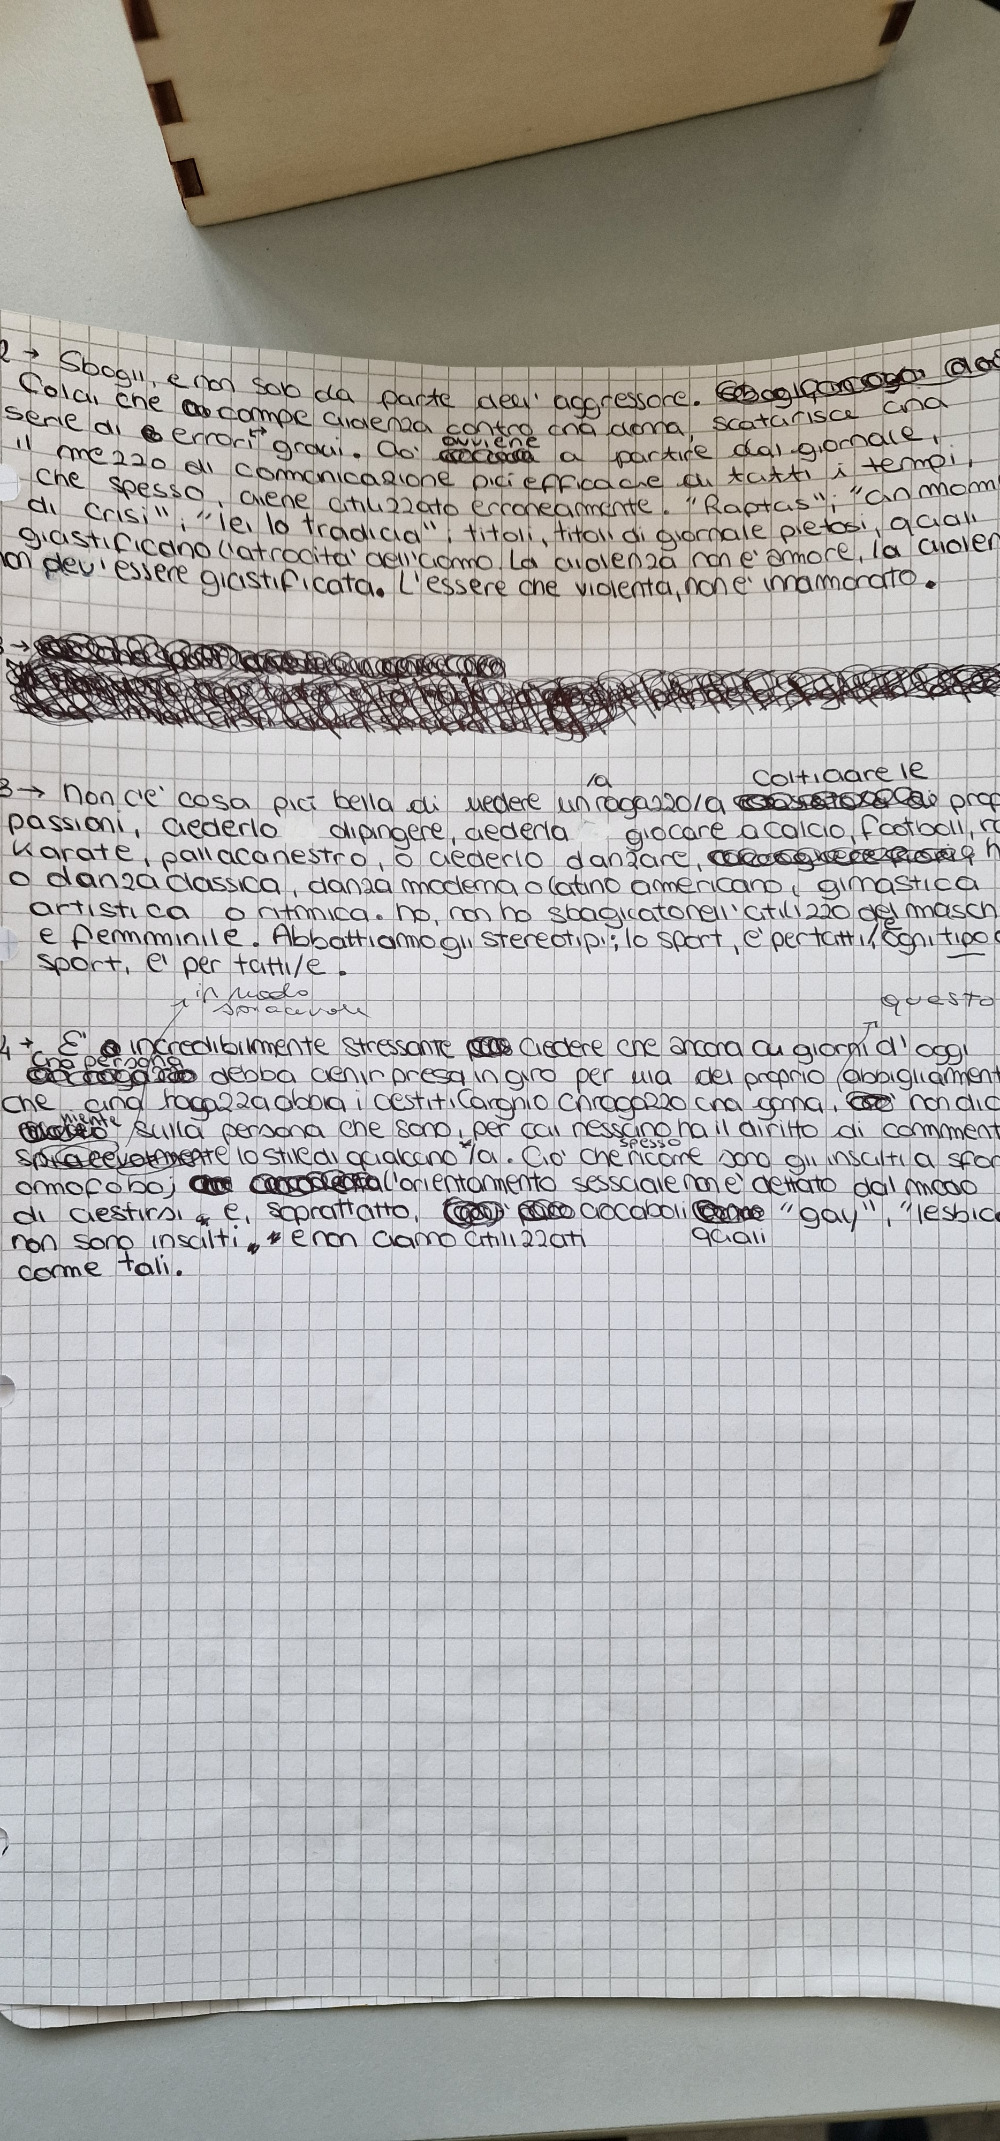 2 → Sbagli, e non solo da parte dell'aggressore.
Colui che compie violenza contro una donna, scaturisce una
serie di errori gravi. Ciò avviene a partire dal giornale,
il mezzo di comunicazione più efficace di tutti i tempi,
che spesso, viene utilizzato erroneamente. "Raptus"; "un mom
di crisi"; "lei lo tradiva"; titoli, titoli di giornale pietosi, quali
giustificano l'atrocità dell'uomo. La violenza non è amore, la violen
non dev'essere giustificata. L'essere che violenta, non è innamorato.
la coltivare le
3 → Non c'è cosa più bella di vedere un ragazzo/a prop
passioni, vederlo dipingere, vederla giocare a calcio, football,
karate, pallacanestro, o vederlo danzare,
o danza classica, danza moderna o latino americano, ginnastica
artistica o ritmica. No, non ho sbagliato nell'utilizzo del masch
e femmminile. Abbattiamo gli stereotipi; lo sport, è per tutti/e, ogni tipo
sport, è per tutti/e.
in modo
spiacevole questo
4 → È incredibilmente stressante vedere che ancora ai giorni d'oggi
una persona debba venir presa in giro per via del proprio abbigliament
che una ragazza abbia i vestiti larghi o un ragazzo una gonna, non dic
niente sulla persona che sono, per cui nessuno ha il diritto di comment
lo stile di qualcuno/a. Ciò che spesso ricorre sono gli insulti a sfon
omofobo; l'orientamento sessuale non è dettato dal modo
di vestirsi e, soprattutto, vocaboli quali "gay", "lesbic
non sono insulti, e non vanno utilizzati
come tali.